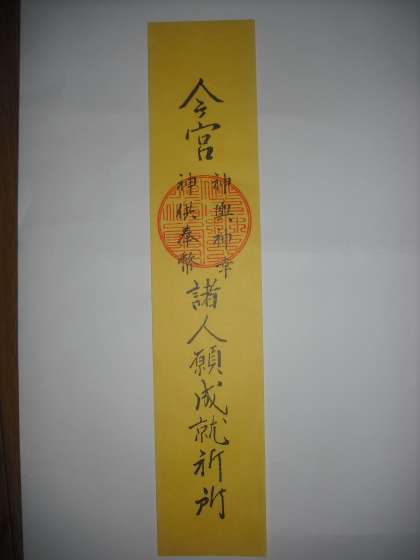 今宮
神輿神幸
神供奉幣
諸人願成就祈所